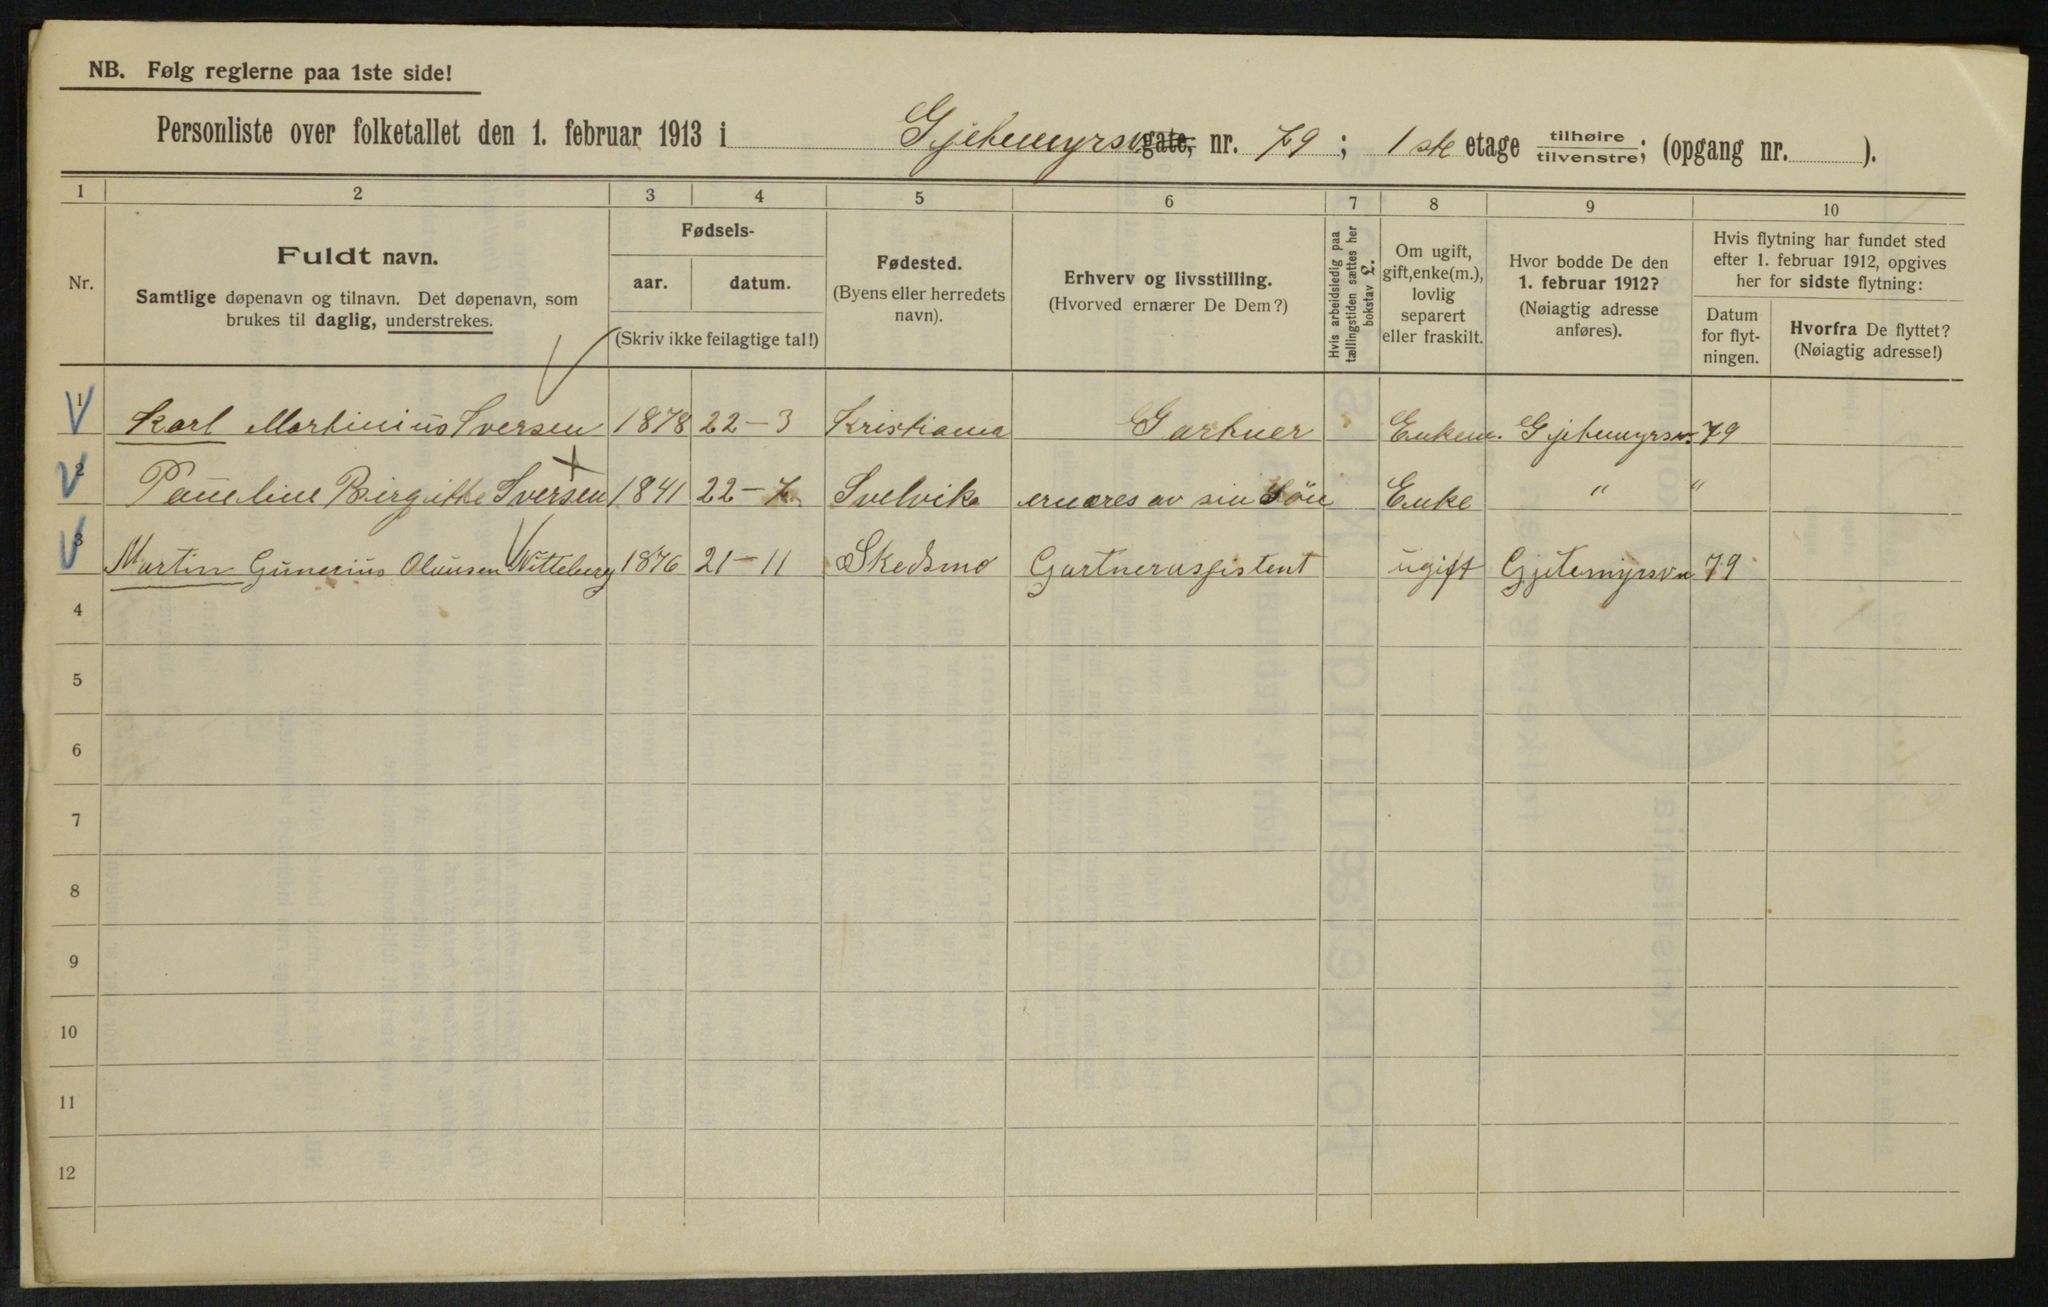 NB. Følg reglerne paa 1ste side!
Personliste over folketallet den 1. februar 1913 i Gjetemyrsv gate, nr. 79; 1ste etage tilhøire/tilvenstre; (opgang nr. ).
1 2 3 4 5 6 7 8 9 10
Nr.
Fuldt navn.
Samtlige døpenavn og tilnavn. Det døpenavn, som
brukes til daglig, understrekes.
Fødsels-
aar. datum.
(Skriv ikke feilagtige tal!)
Fødested.
(Byens eller herredets
navn).
Erhverv og livsstilling.
(Hvorved ernærer De Dem?)
Hvis arbeidsledig paa
tællingstiden sættes her
bokstav L.
Om ugift,
gift, enke(m.),
lovlig
separert
eller fraskilt.
Hvor bodde De den
1. februar 1912?
(Nøiagtig adresse
anføres).
Hvis flytning har fundet sted
efter 1. februar 1912, opgives
her for sidste flytning:
Datum
for flyt-
ningen.
Hvorfra De flyttet?
(Nøiagtig adresse!)
1 Karl Martinius Iversen 1878 22-3 Kristiania Gartner Enkem. Gjetemyrsv. 79
2 Pauline Birgitte Iversen 1841 22-7 Svelvik ernæres av sin Søn Enke " "
3 Martin Gunerius Olausen Nitteberg 1876 21-11 Skedsmo Gartnerassistent ugift Gjetemyrsvn 79
4
5
6
7
8
9
10
11
12